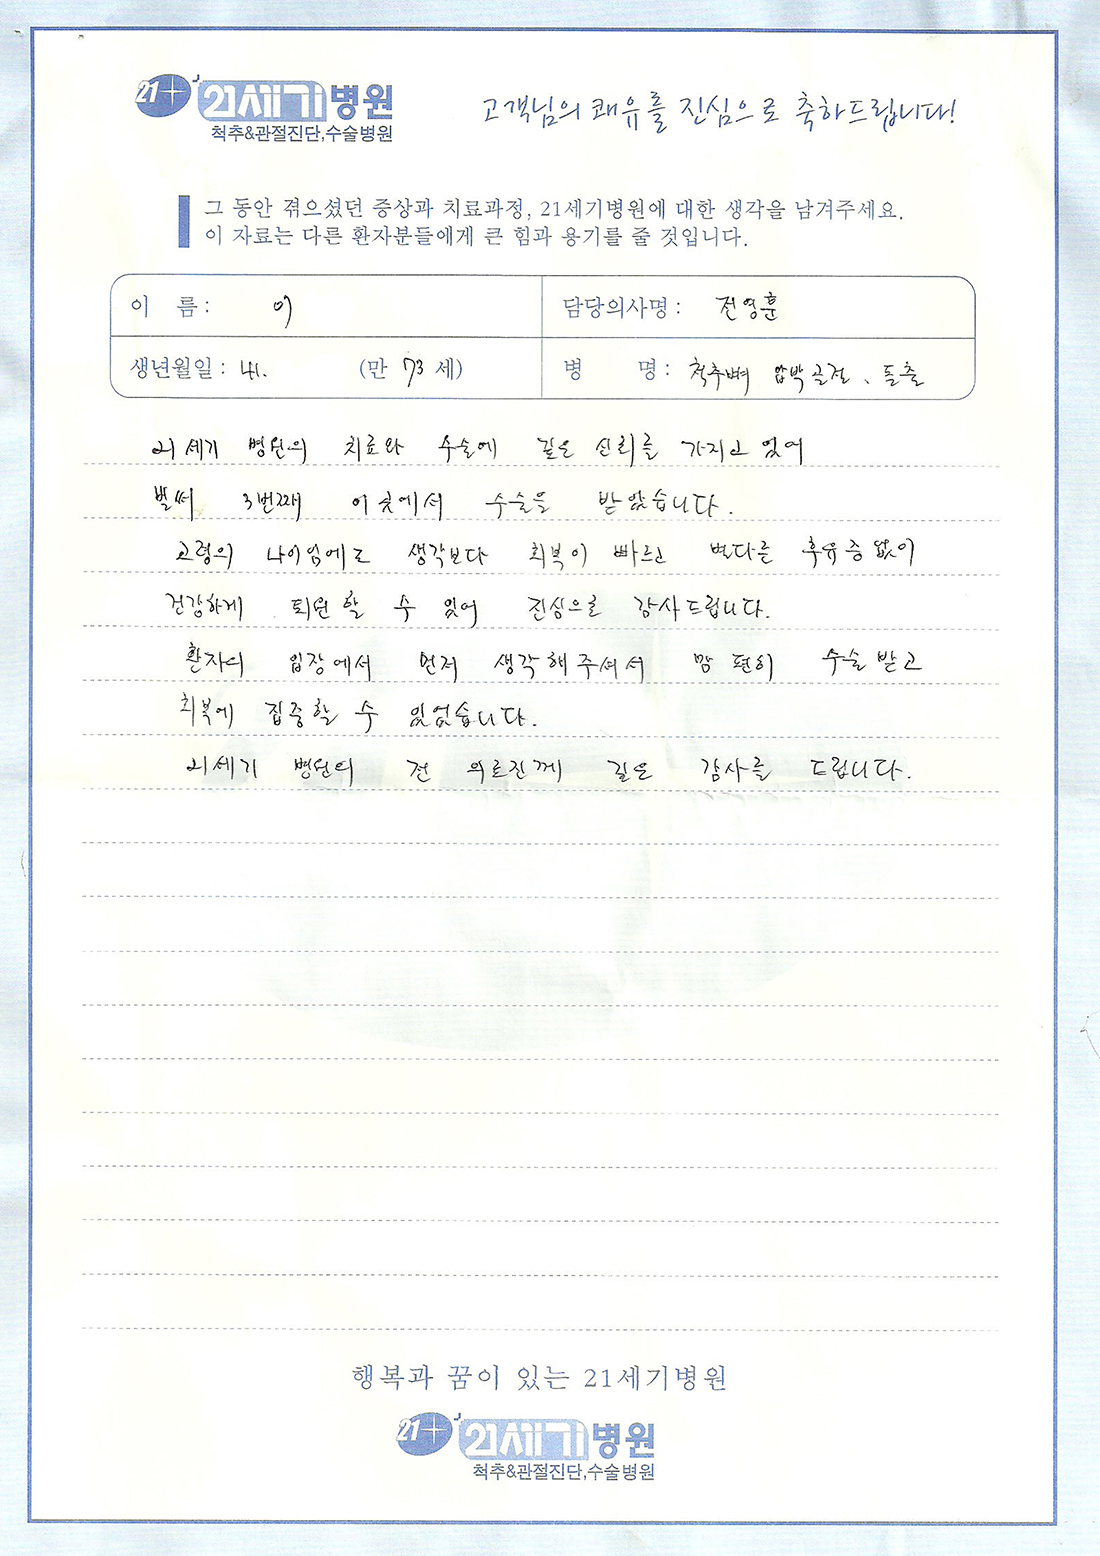 21+ 21세기병원
척추&관절진단,수술병원
고객님의 쾌유를 진심으로 축하드립니다!
그 동안 겪으셨던 증상과 치료과정, 21세기병원에 대한 생각을 남겨주세요.
이 자료는 다른 환자분들에게 큰 힘과 용기를 줄 것입니다.
이 름 : 이
담당의사명 : 전영훈
생년월일 : 41. (만 73 세)
병 명 : 척추뼈 압박골절, 돌출
21세기 병원의 치료와 수술에 깊은 신뢰를 가지고 있어
벌써 3번째 이곳에서 수술을 받았습니다.
고령의 나이임에도 생각보다 회복이 빠르고 별다른 후유증없이
건강하게 퇴원할 수 있어 진심으로 감사드립니다.
환자의 입장에서 먼저 생각해주셔서 맘 편히 수술받고
회복에 집중할 수 있었습니다.
21세기 병원의 전 의료진께 깊은 감사를 드립니다.
행복과 꿈이 있는 21세기병원
21+ 21세기병원
척추&관절진단,수술병원